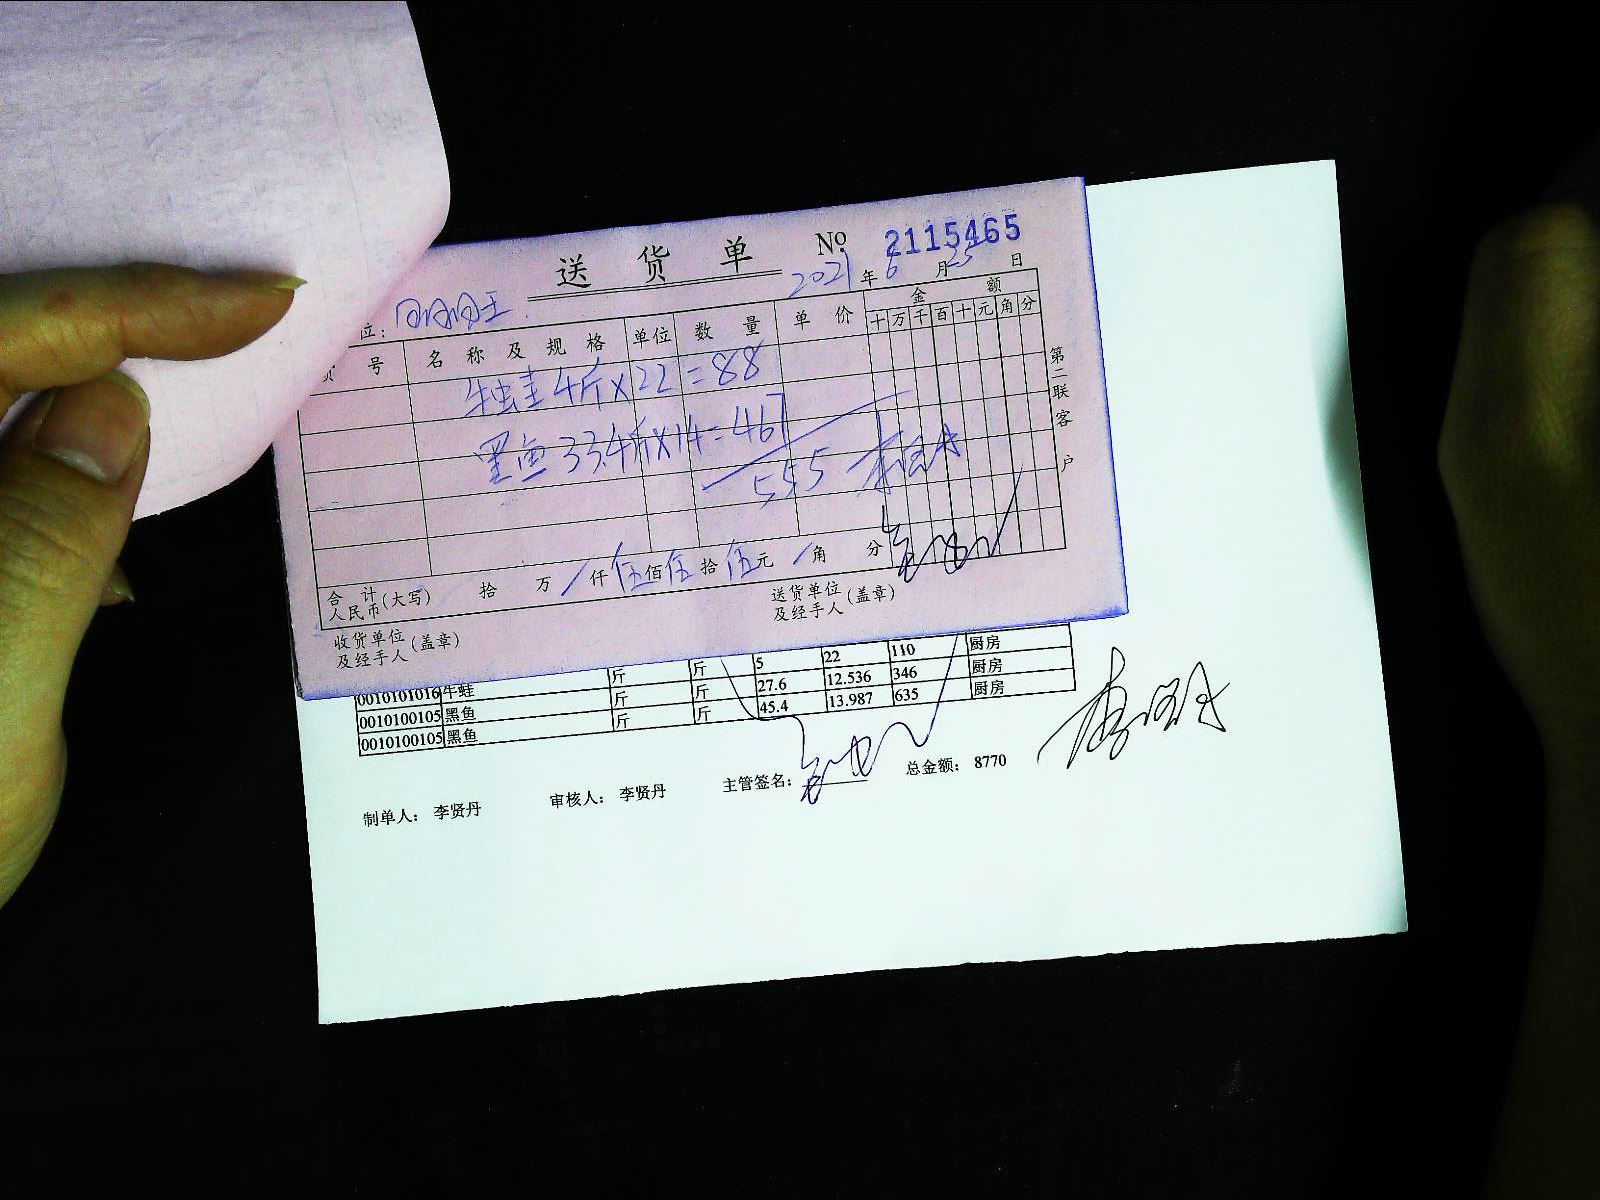 送货单 № 2115465
2021年6月25日
位：
号 名称及规格 单位 数量 单价 金额
十万千百十元角分
牛蛙 4斤×22=88
黑鱼 33.4斤×14=467
555
第二联 客户
合计人民币(大写) 拾 万 / 仟 伍 佰 伍 拾 伍 元 / 角 分
收货单位及经手人(盖章) 送货单位及经手人(盖章)
0010101016 牛蛙 斤 斤 5 22 110 厨房
0010100105 黑鱼 斤 斤 27.6 12.536 346 厨房
0010100105 黑鱼 斤 斤 45.4 13.987 635 厨房
制单人： 李贤丹 审核人： 李贤丹 主管签名： 总金额： 8770